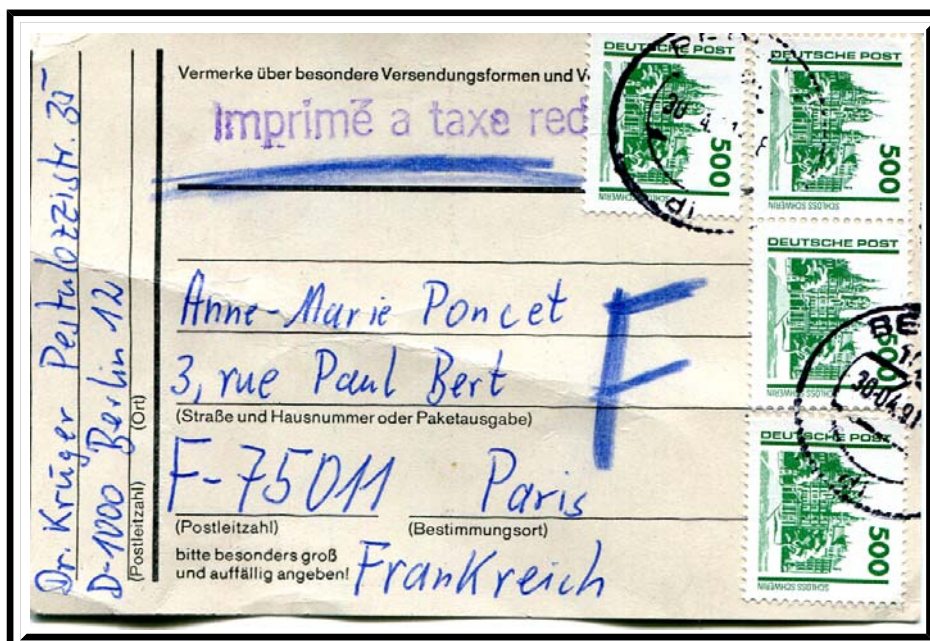 Dr. Krüger Pestalozzistr. 35
D-1000 Berlin 12
(Postleitzahl) (Ort)
Vermerke über besondere Versendungsformen und
Imprimé a taxe red
Anne-Marie Poncet
3, rue Paul Bert
(Straße und Hausnummer oder Paketausgabe)
F-75011 Paris
(Postleitzahl) (Bestimmungsort)
bitte besonders groß
und auffällig angeben!
Frankreich
F
DEUTSCHE POST
500
SCHLOSS SCHWERIN
DEUTSCHE POST
500
SCHLOSS SCHWERIN
DEUTSCHE POST
500
SCHLOSS SCHWERIN
DEUTSCHE POST
500
SCHLOSS SCHWERIN
BE
30.04.91